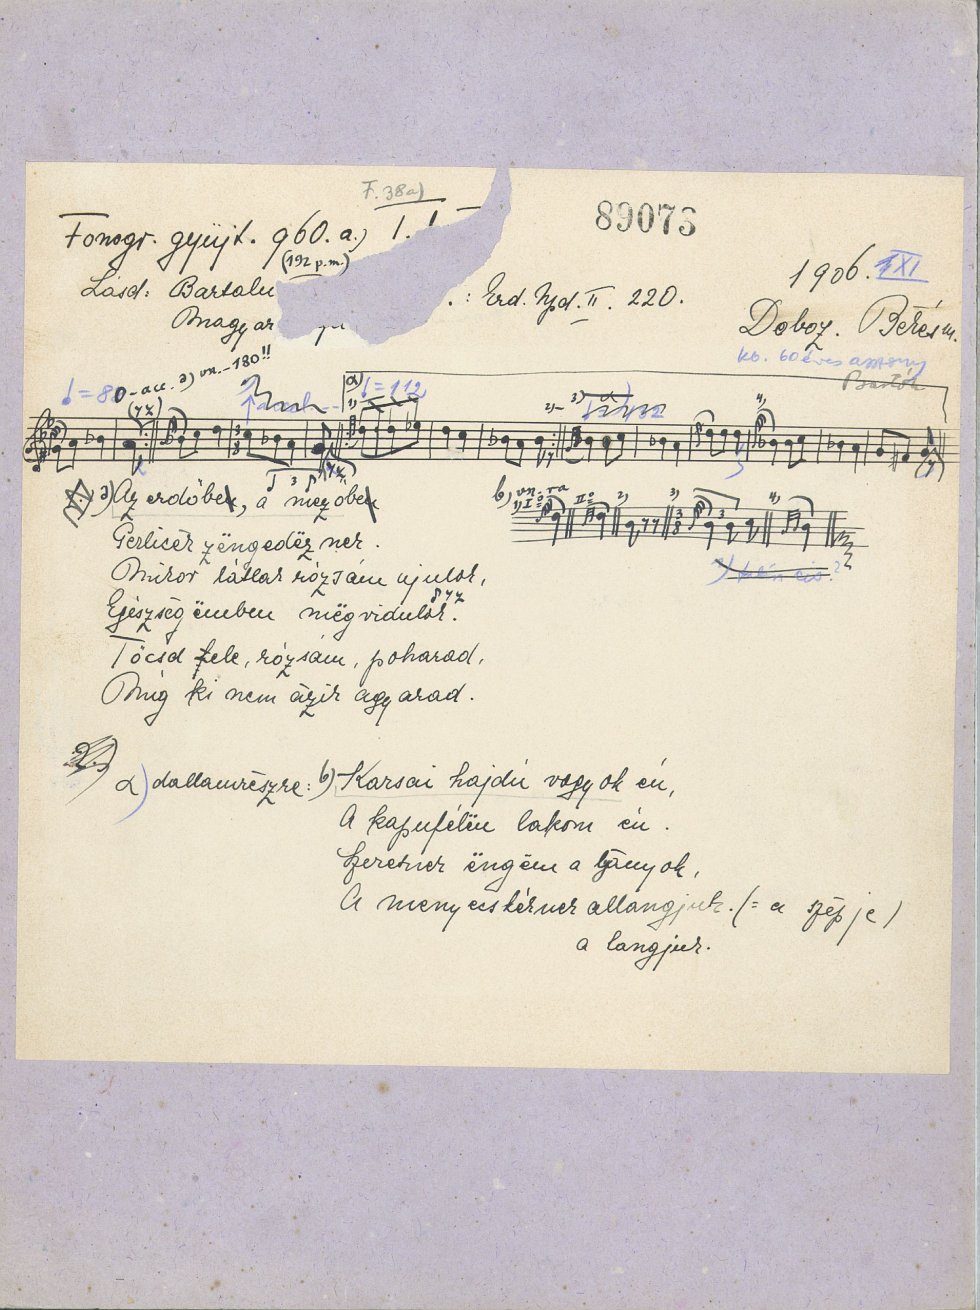 F. 38a)
89073
Fonogr. gyüjt. 960. a.) I.
(192 p.m.)
1906. XI
Lásd: Bartalu : Erd. Npd. II. 220.
Magyar
Doboz. Békés m.
kb. 60 éves asszony
Bartók
= 80 - acc. a) vn. - 180!!
a) = 112
a) Az erdőben, a mezőben
b) vn. ra
1) I° II° 2) 3) 4)
Gerlicék zëngedëznek.
Mikor látlak rózsám ujulok,
Egészségëmben mëgvidulok.
Töcsd tele, rózsám, poharad,
Míg ki nem ázik agyarad.
2.)
a) dallamrészre: b) Karsai hajdú vagyok én,
A kapufélën lakom én.
Szeretnek ëngëm a lányok,
A menyecskéknek allangjuk. (= a szépje)
a langjuk.